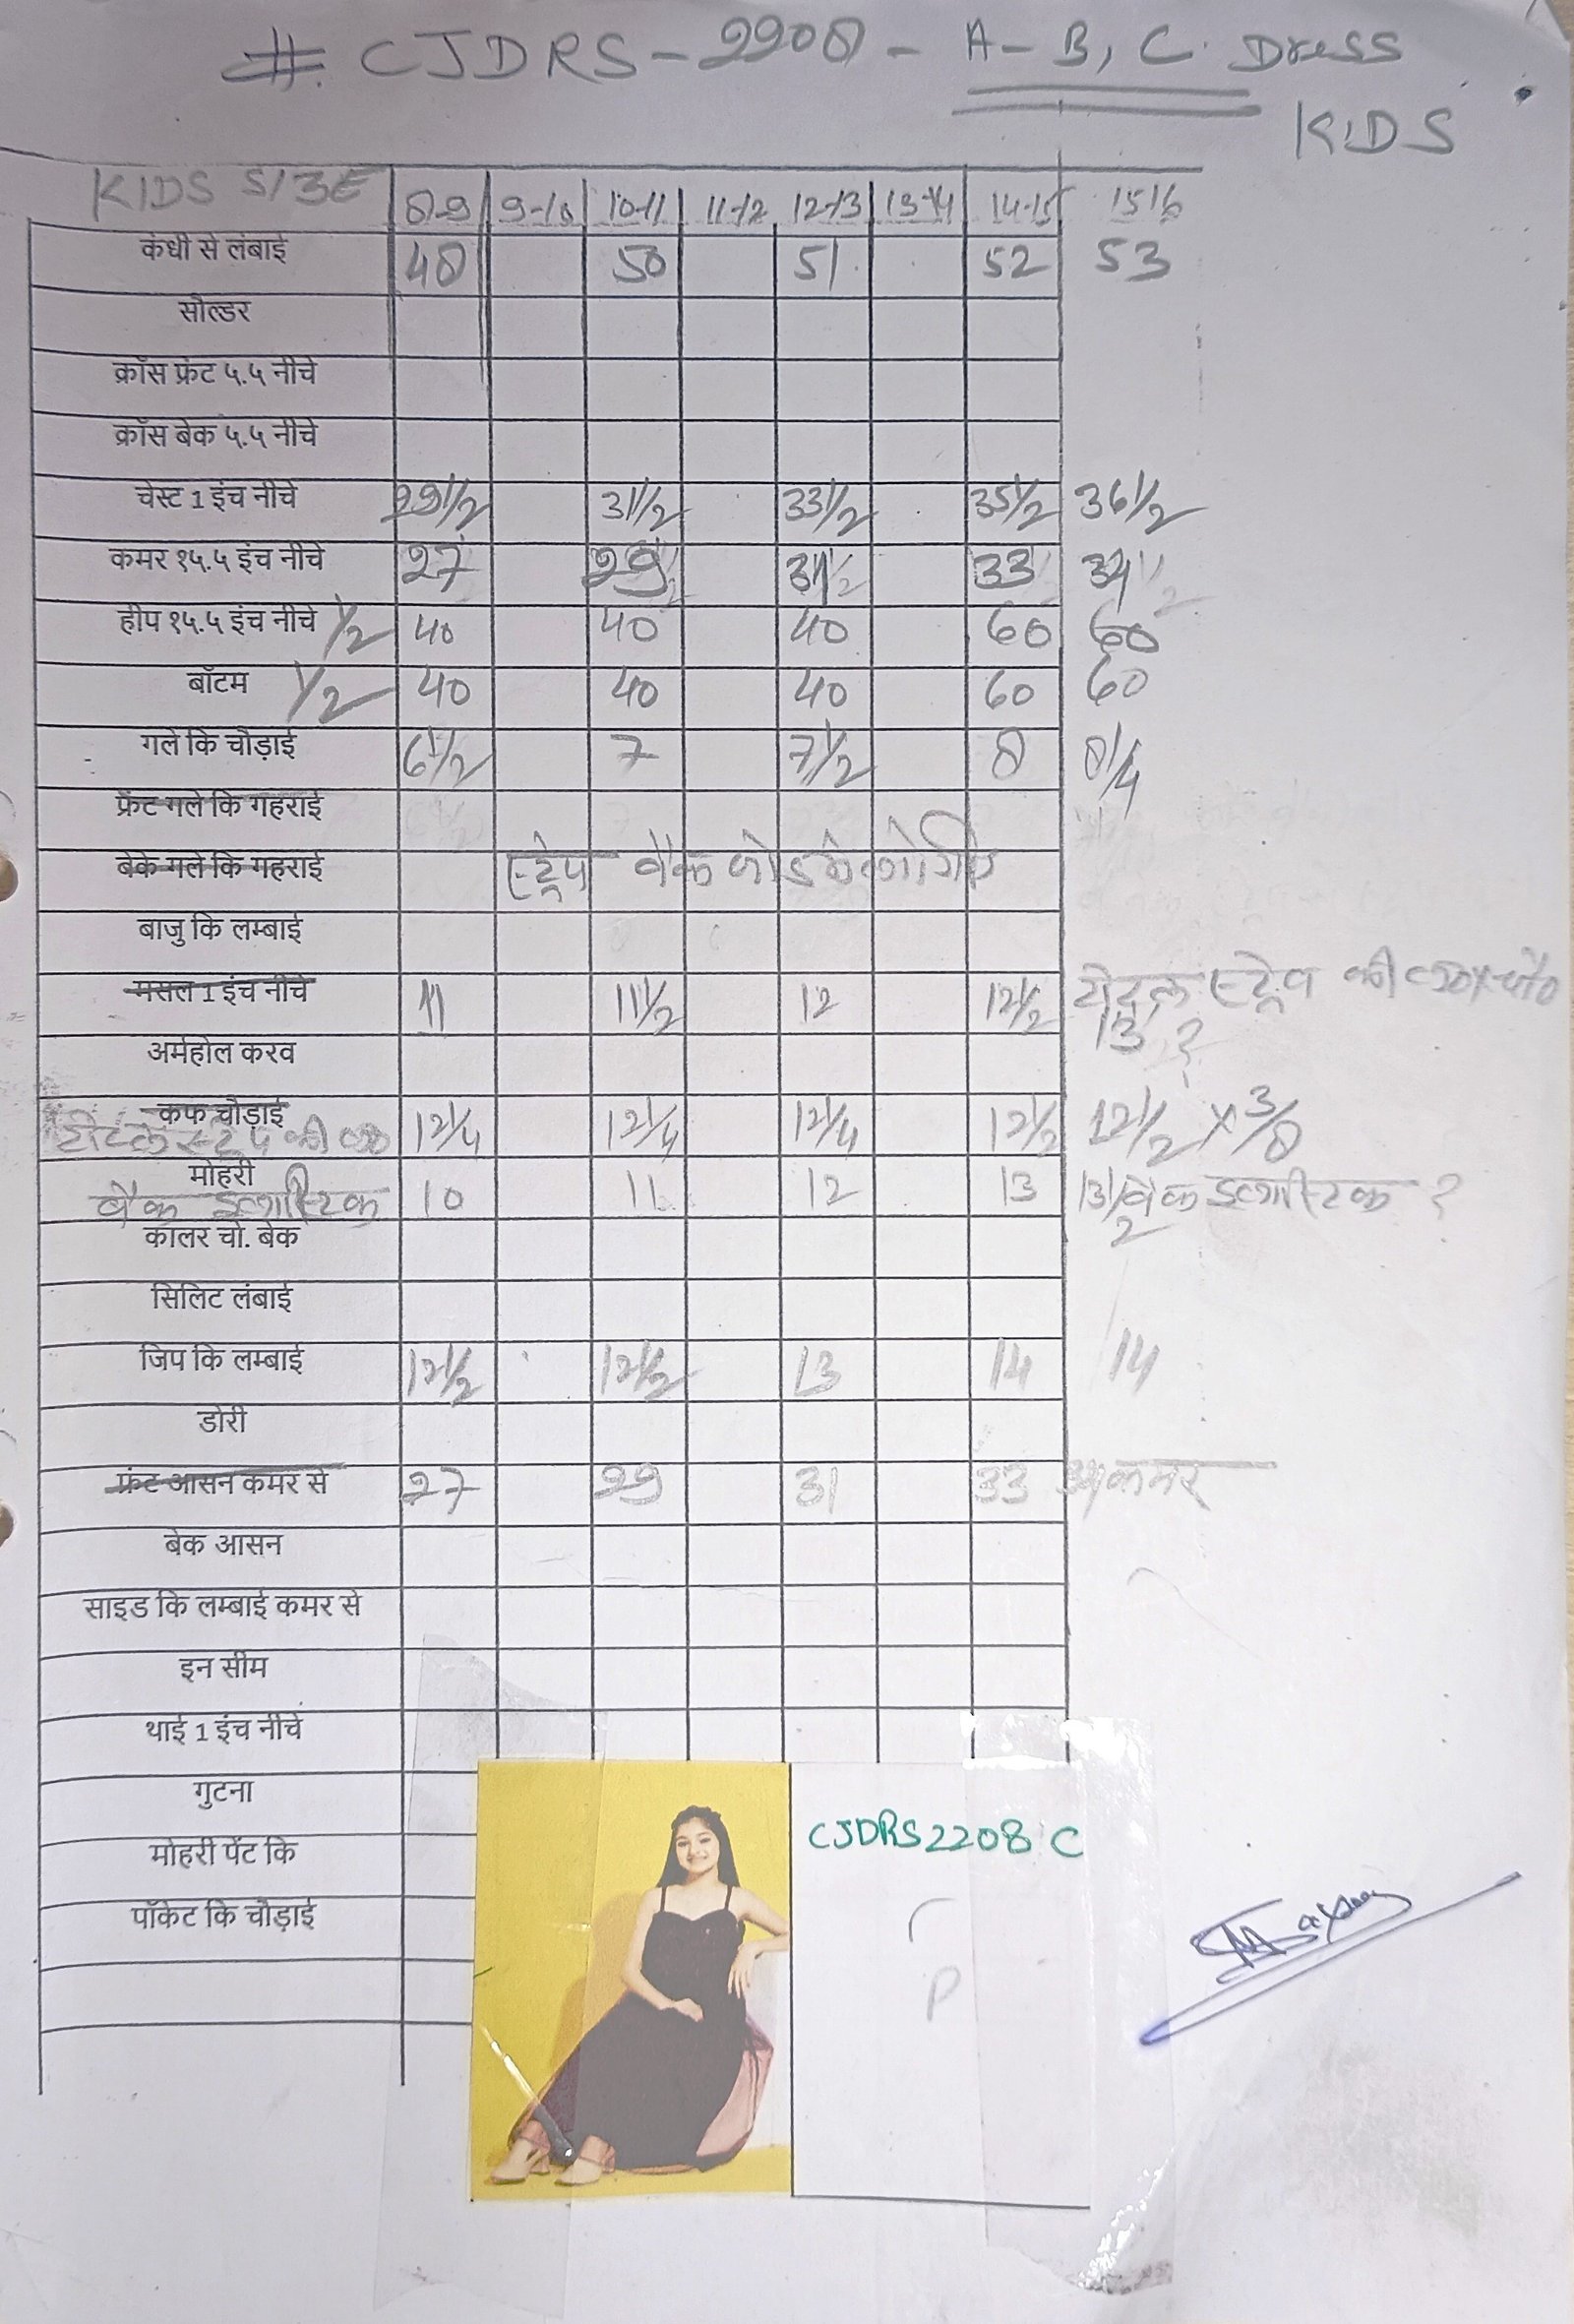 # CJDRS-2208 - A-B, C. Dress
KIDS
KIDS SIZE 8-9 9-10 10-11 11-12 12-13 13-14 14-15 15-16
कंधी से लंबाई 48 50 51 52 53
सौल्डर
क्रॉस फ्रंट ५.५ नीचे
क्रॉस बेक ५.५ नीचे
चेस्ट 1 इंच नीचे 29 1/2 31 1/2 33 1/2 35 1/2 36 1/2
कमर १५.५ इंच नीचे 27 29 1/2 31 1/2 33 34 1/2
हीप १५.५ इंच नीचे 1/2 40 40 40 60 60
बॉटम 1/2 40 40 40 60 60
गले कि चौड़ाई 6 1/2 7 7 1/2 8 8 1/4
फ्रेंट गले कि गहराई
बेके गले कि गहराई स्ट्रेप बैक
बाजु कि लम्बाई
मसल 1 इंच नीचे 11 11 1/2 12 12 1/2 टोटल स्ट्रेप की
13 ?
अर्महोल करव
कफ चौड़ाई 12 1/4 12 1/4 12 1/4 12 1/2 12 1/2 x 3/8
टोटल स्ट्रेप की
मोहरी 10 11 12 13 13 1/2 बैक इलास्टिक ?
बैक इलास्टिक
कालर चो. बेक
सिलिट लंबाई
जिप कि लम्बाई 12 1/2 12 1/2 13 14 14
डोरी
फ्रंट आसन कमर से 27 29 31 33 34 कमर
बेक आसन
साइड कि लम्बाई कमर से
इन सीम
थाई 1 इंच नीचे
गुटना
मोहरी पेंट कि
पॉकेट कि चौड़ाई
CJDRS2208 C
P